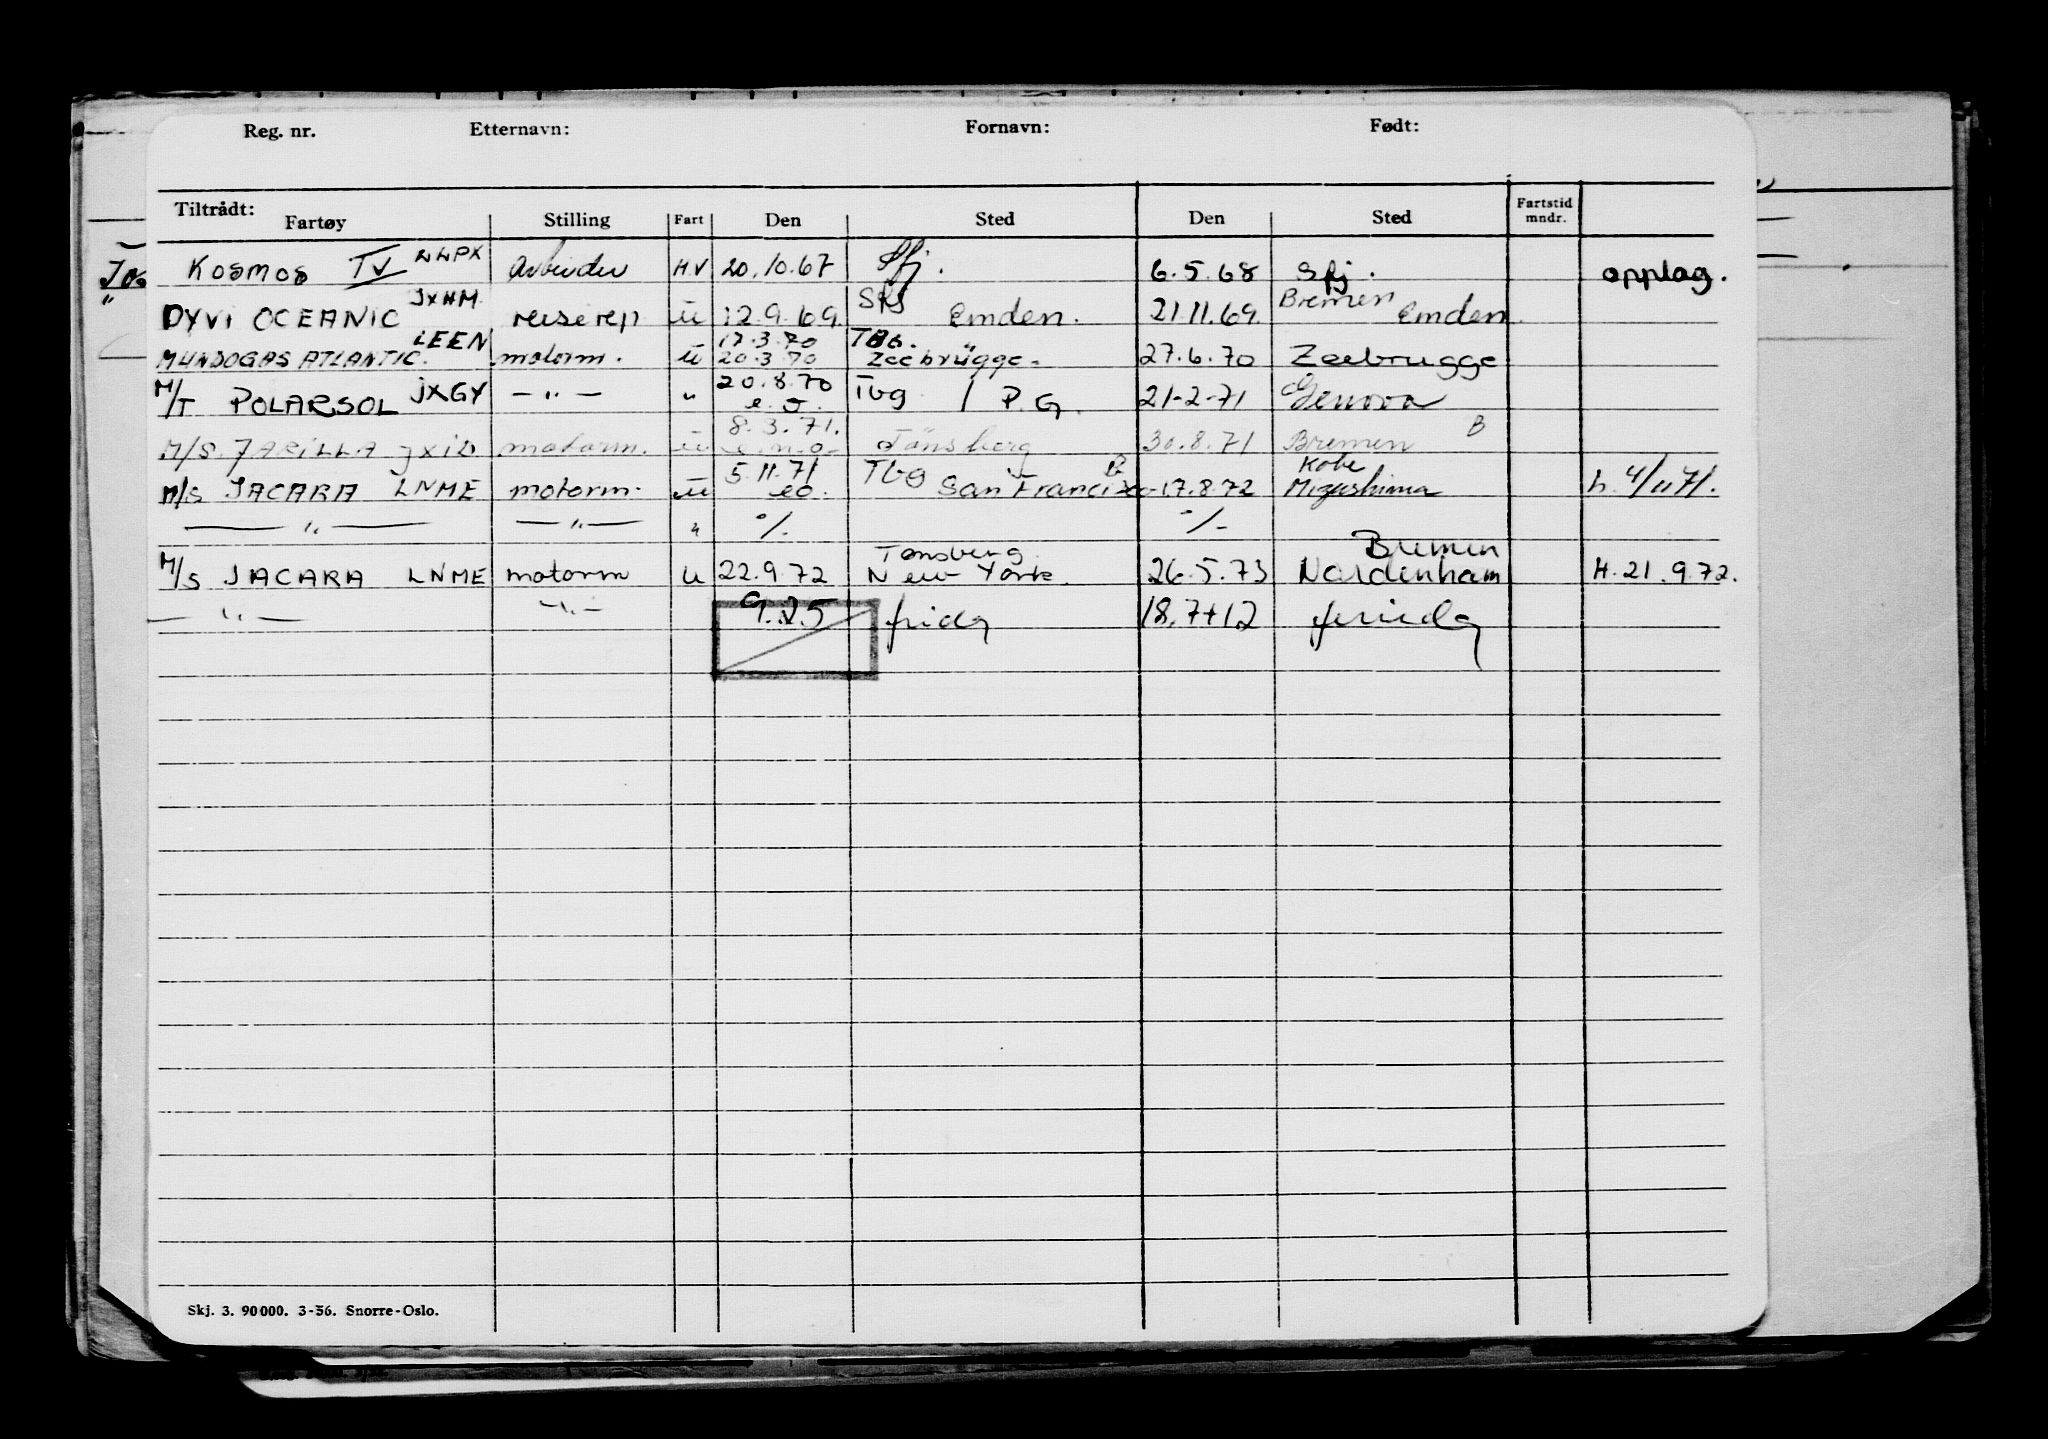 Reg. nr. Etternavn: Fornavn: Født:
Tiltrådt:
Fartøy Stilling Fart Den Sted Den Sted Fartstid mndr.
KOSMOS IV LLPX Arbeider H.V 20.10.67 Sfj. 6.5.68 Sfj. opplag.
DYVI OCEANIC JXHM reiserep u 12.9.69. Sfj Emden. 21.11.69. Bremen Emden.
17.3.70 TBG.
MUNDOGAS ATLANTIC. LEEN motorm. u 20.3.70 Zeebrügge. 27.6.70 Zeebrugge
M/T POLARSOL JXGY — " — " 20.8.70 e.o. Tbg / P.G. 21-2-71 Genova
M/S. JARILLA JXID motorm. u 8.3.71. Tönsberg 30.8.71 Bremen B
M/S JACARA LNME motorm. u 5.11.71 eo. Tbg San Francisco 17.8.72 Kobe Mizushima h. 4/11 71.
— " — — " — " %. %-
Tønsberg Bremen
M/S JACARA LNME motorm u 22.9.72 New York. 26.5.73 Nordenham H.21.9.72.
— " — — " — 9.25 18.7+12
Skj. 3. 90000. 3-56. Snorre-Oslo.